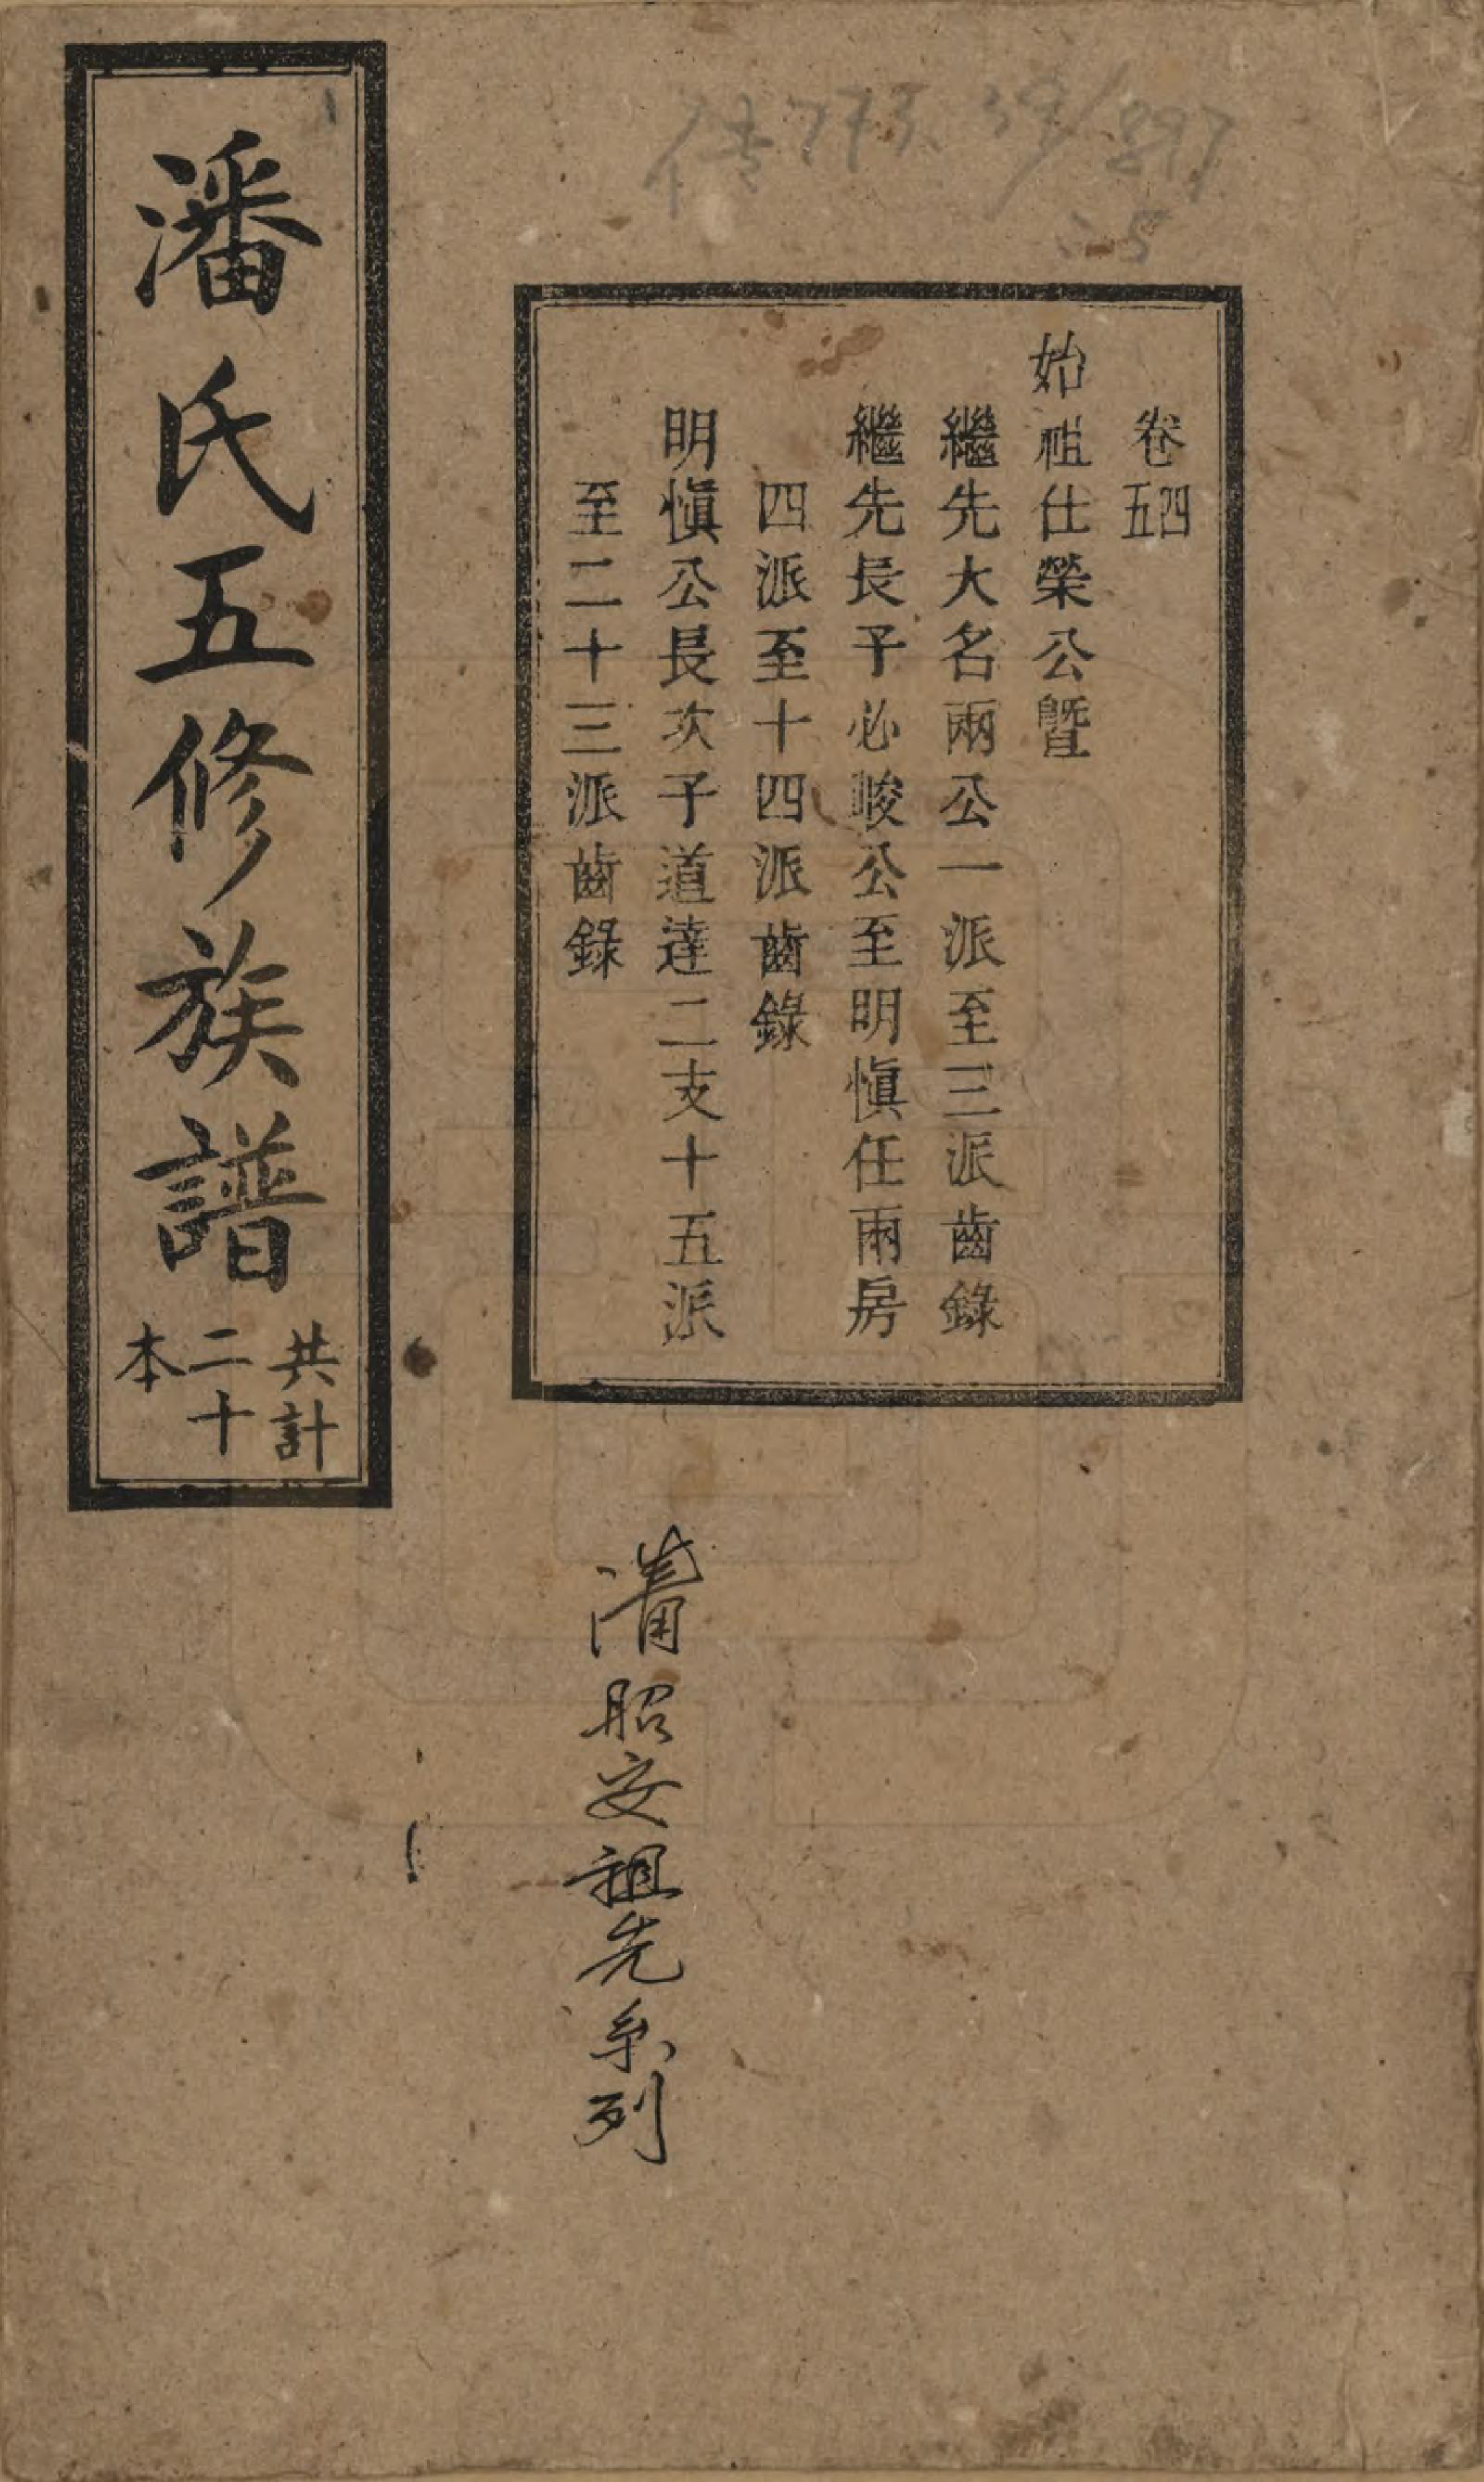 卷四五
始祖仕榮公暨
繼先大名兩公一派至三派齒錄
繼先長子必峻公至明愼任兩房
四派至十四派齒錄
明愼公長次子道達二支十五派
至二十三派齒錄
潘氏五修族譜
共計
二十
本
清昭安祖先系列